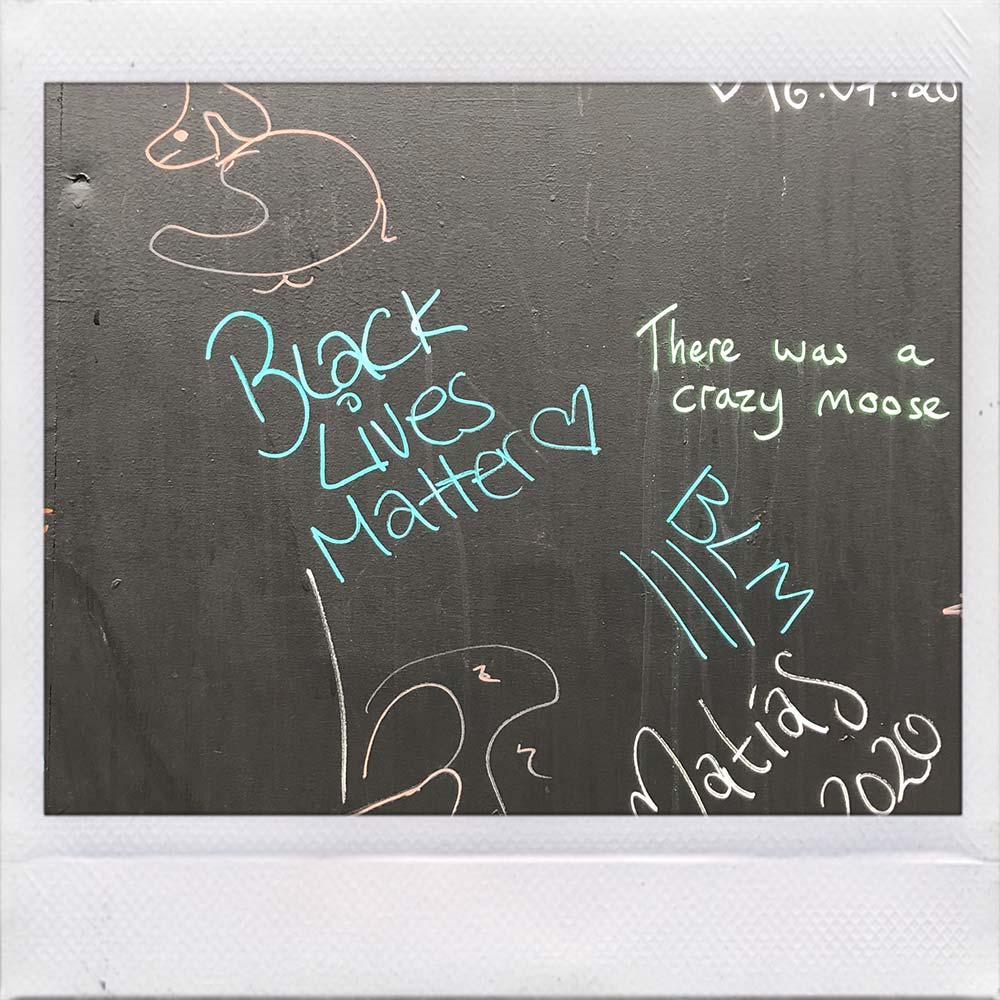 16.07.20
Black
Lives
Matter
There was a
crazy moose
BLM
Matías
2020